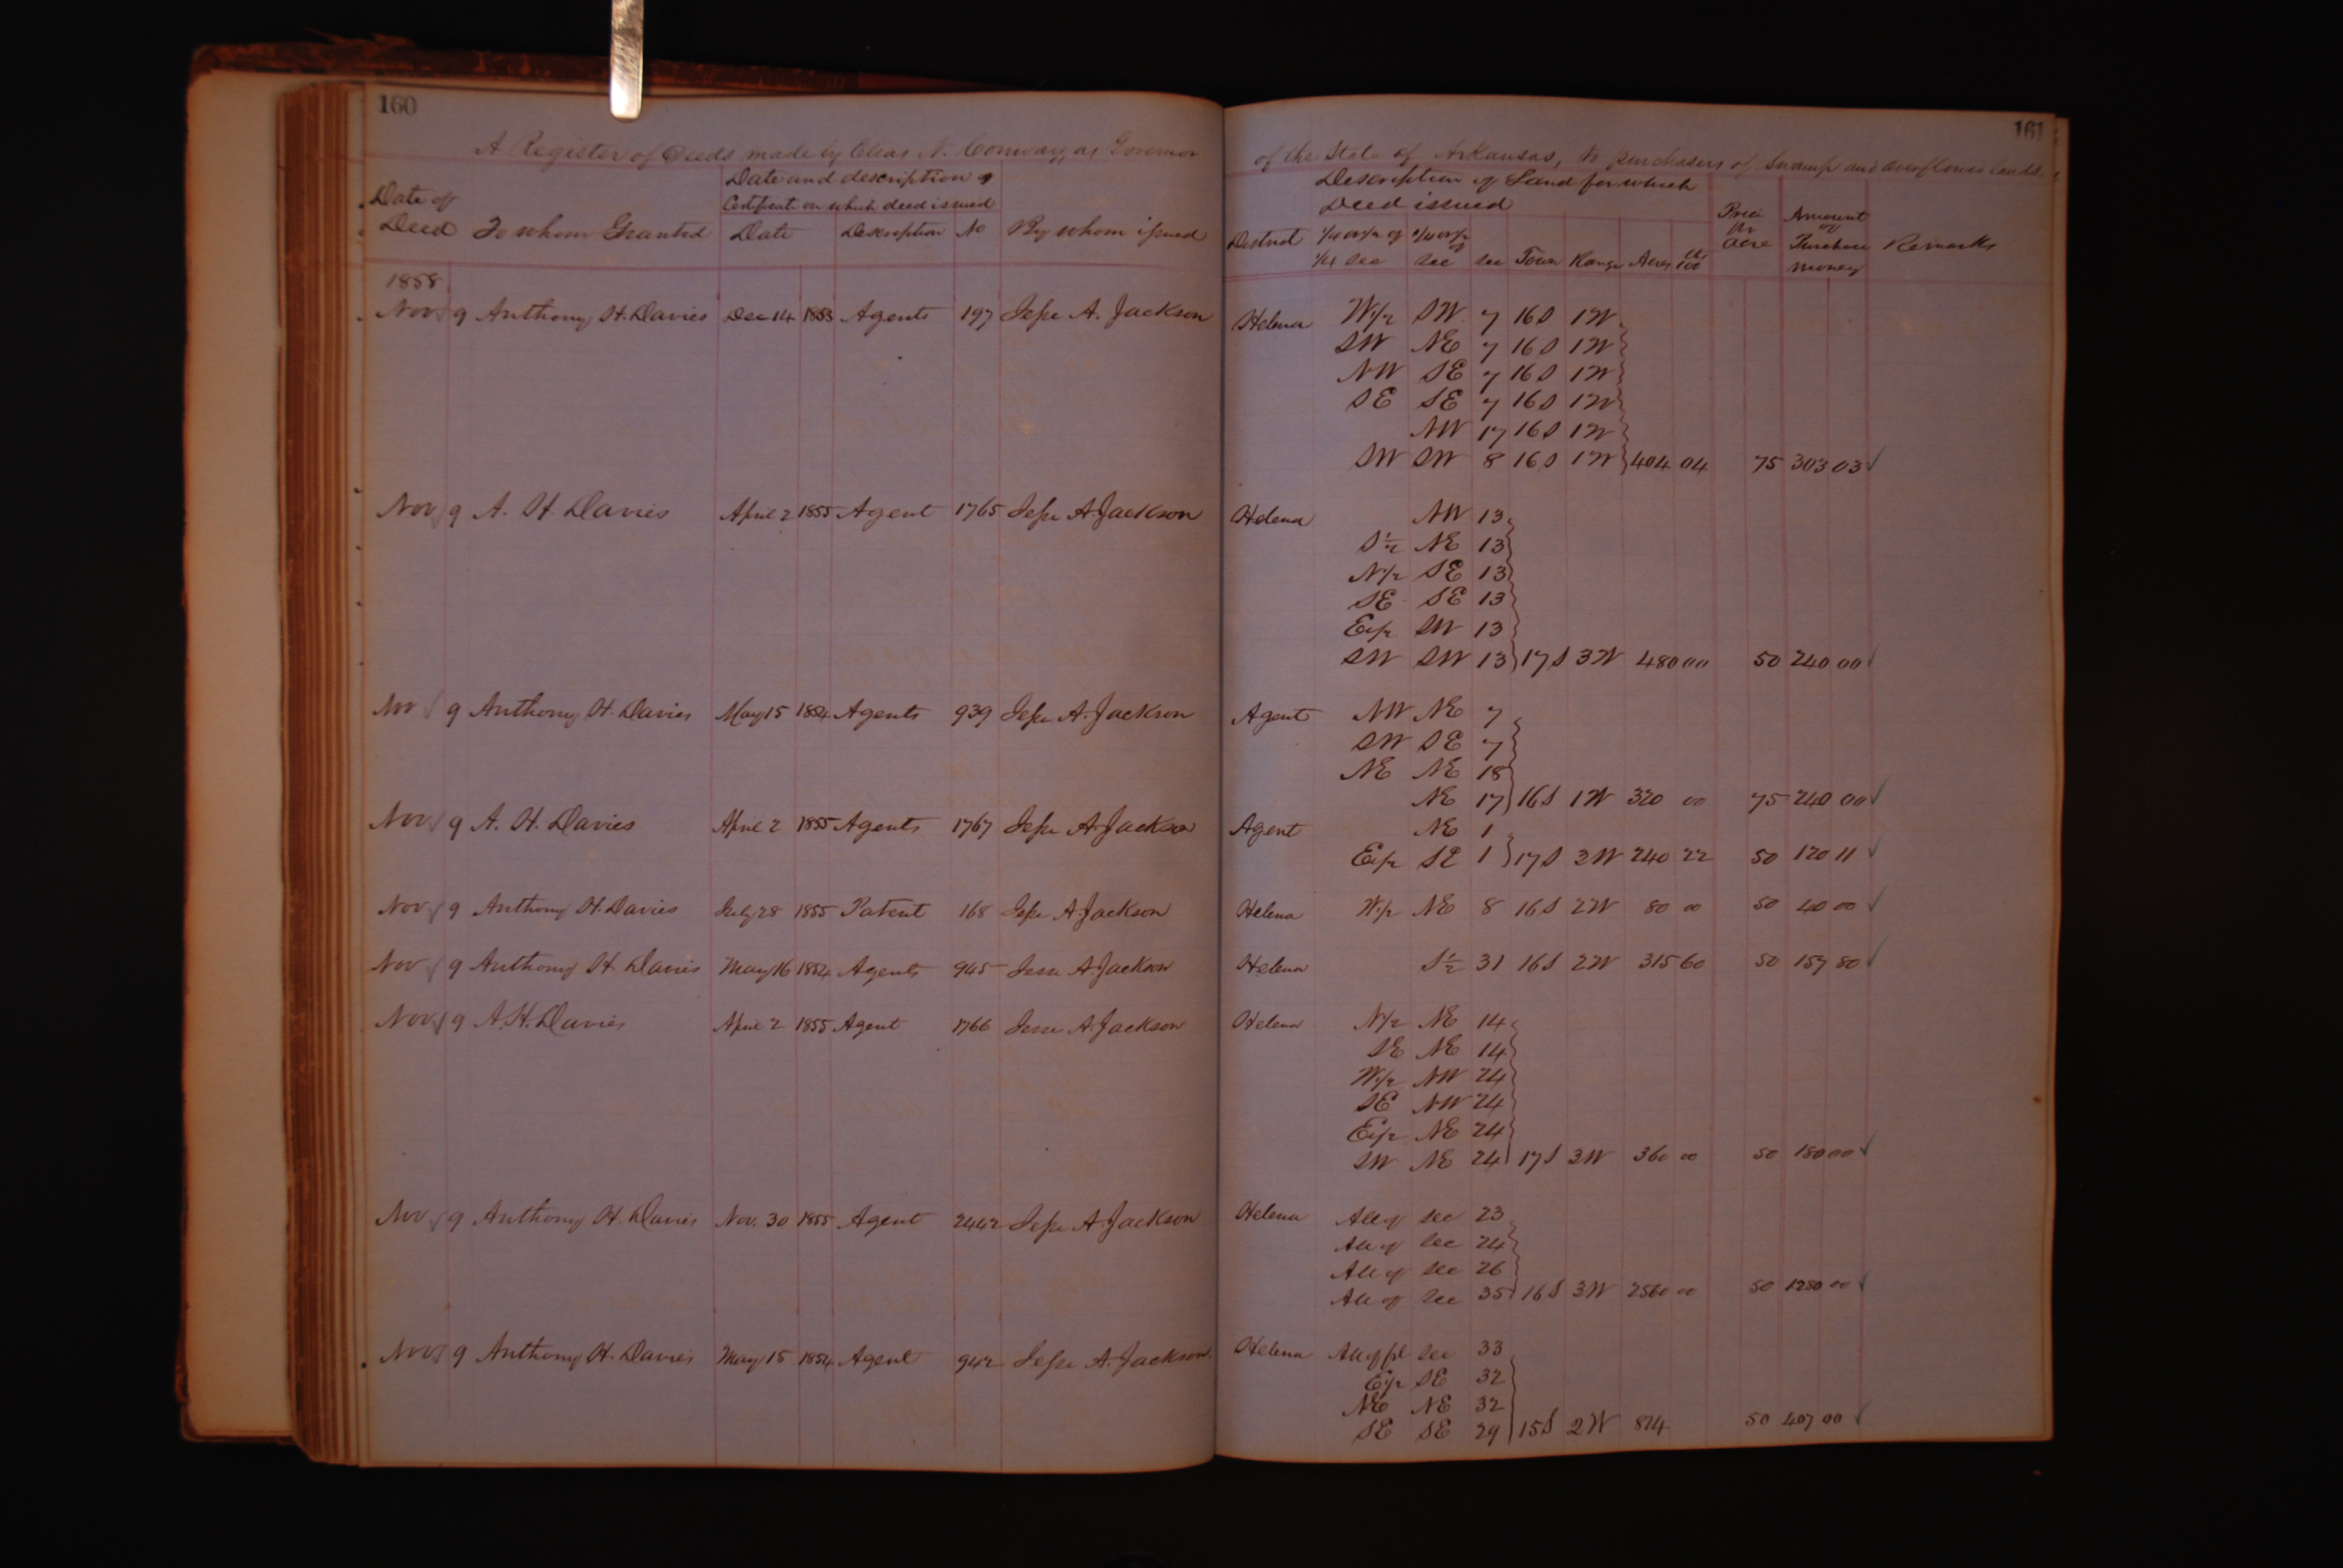 160
A Register of Deeds made by Elias N. Conway, as Governor
Date of Deed To whom Granted Date and description of Certificate on which deed issued Date Description No By whom issued
1858
Nov 9 Anthony H. Davies Dec 14 1853 Agents 197 Jesse A. Jackson
Nov 9 A. H. Davies April 2 1855 Agent 1765 Jesse A. Jackson
Nov 9 Anthony H. Davies May 15 1854 Agents 939 Jesse A. Jackson
Nov 9 A. H. Davies April 2 1855 Agents 1767 Jesse A. Jackson
Nov 9 Anthony H. Davies July 28 1855 Patent 168 Jesse A. Jackson
Nov 9 Anthony H. Davies May 16 1854 Agents 945 Jesse A. Jackson
Nov 9 A. H. Davies April 2 1855 Agent 1766 Jesse A. Jackson
Nov 9 Anthony H. Davies Nov. 30 1855 Agent 2442 Jesse A. Jackson
Nov 9 Anthony H. Davies May 15 1854 Agent 942 Jesse A. Jackson
161
of the State of Arkansas, to purchasers of Swamp and overflowed lands.
Description of Land for which
Deed issued
District 1/4 or 1/2 of 1/4 Sec 1/4 or 1/2 of Sec Sec Town Range Acres 100 Price Pr Acre Amount of Purchase money Remarks
Helena W 1/2 SW 7 16 S 1 W
SW NE 7 16 S 1 W
NW SE 7 16 S 1 W
SE SE 7 16 S 1 W
NW 17 16 S 1 W
SW SW 8 16 S 1 W 404 04 75 303 03 ✓
Helena NW 13
S 1/2 NE 13
N 1/2 SE 13
SE SE 13
E 1/2 SW 13
SW SW 13 17 S 3 W 480 00 50 240 00 ✓
Agent NW NE 7
SW SE 7
NE NE 18
NE 17 16 S 1 W 320 00 75 240 00 ✓
Agent NE 1
E 1/2 SE 1 17 S 3 W 240 22 50 120 11 ✓
Helena W 1/2 NE 8 16 S 2 W 80 00 50 40 00 ✓
Helena S 1/2 31 16 S 2 W 315 60 50 157 80 ✓
Helena N 1/2 NE 14
SE NE 14
W 1/2 NW 24
SE NW 24
E 1/2 NE 24
SW NE 24 17 S 3 W 360 00 50 180 00 ✓
Helena All of Sec 23
All of Sec 24
All of Sec 26
All of Sec 35 16 S 3 W 2560 00 50 1280 00 ✓
Helena All of fl Sec 33
E 1/2 SE 32
NE NE 32
SE SE 29 15 S 2 W 814 50 407 00 ✓